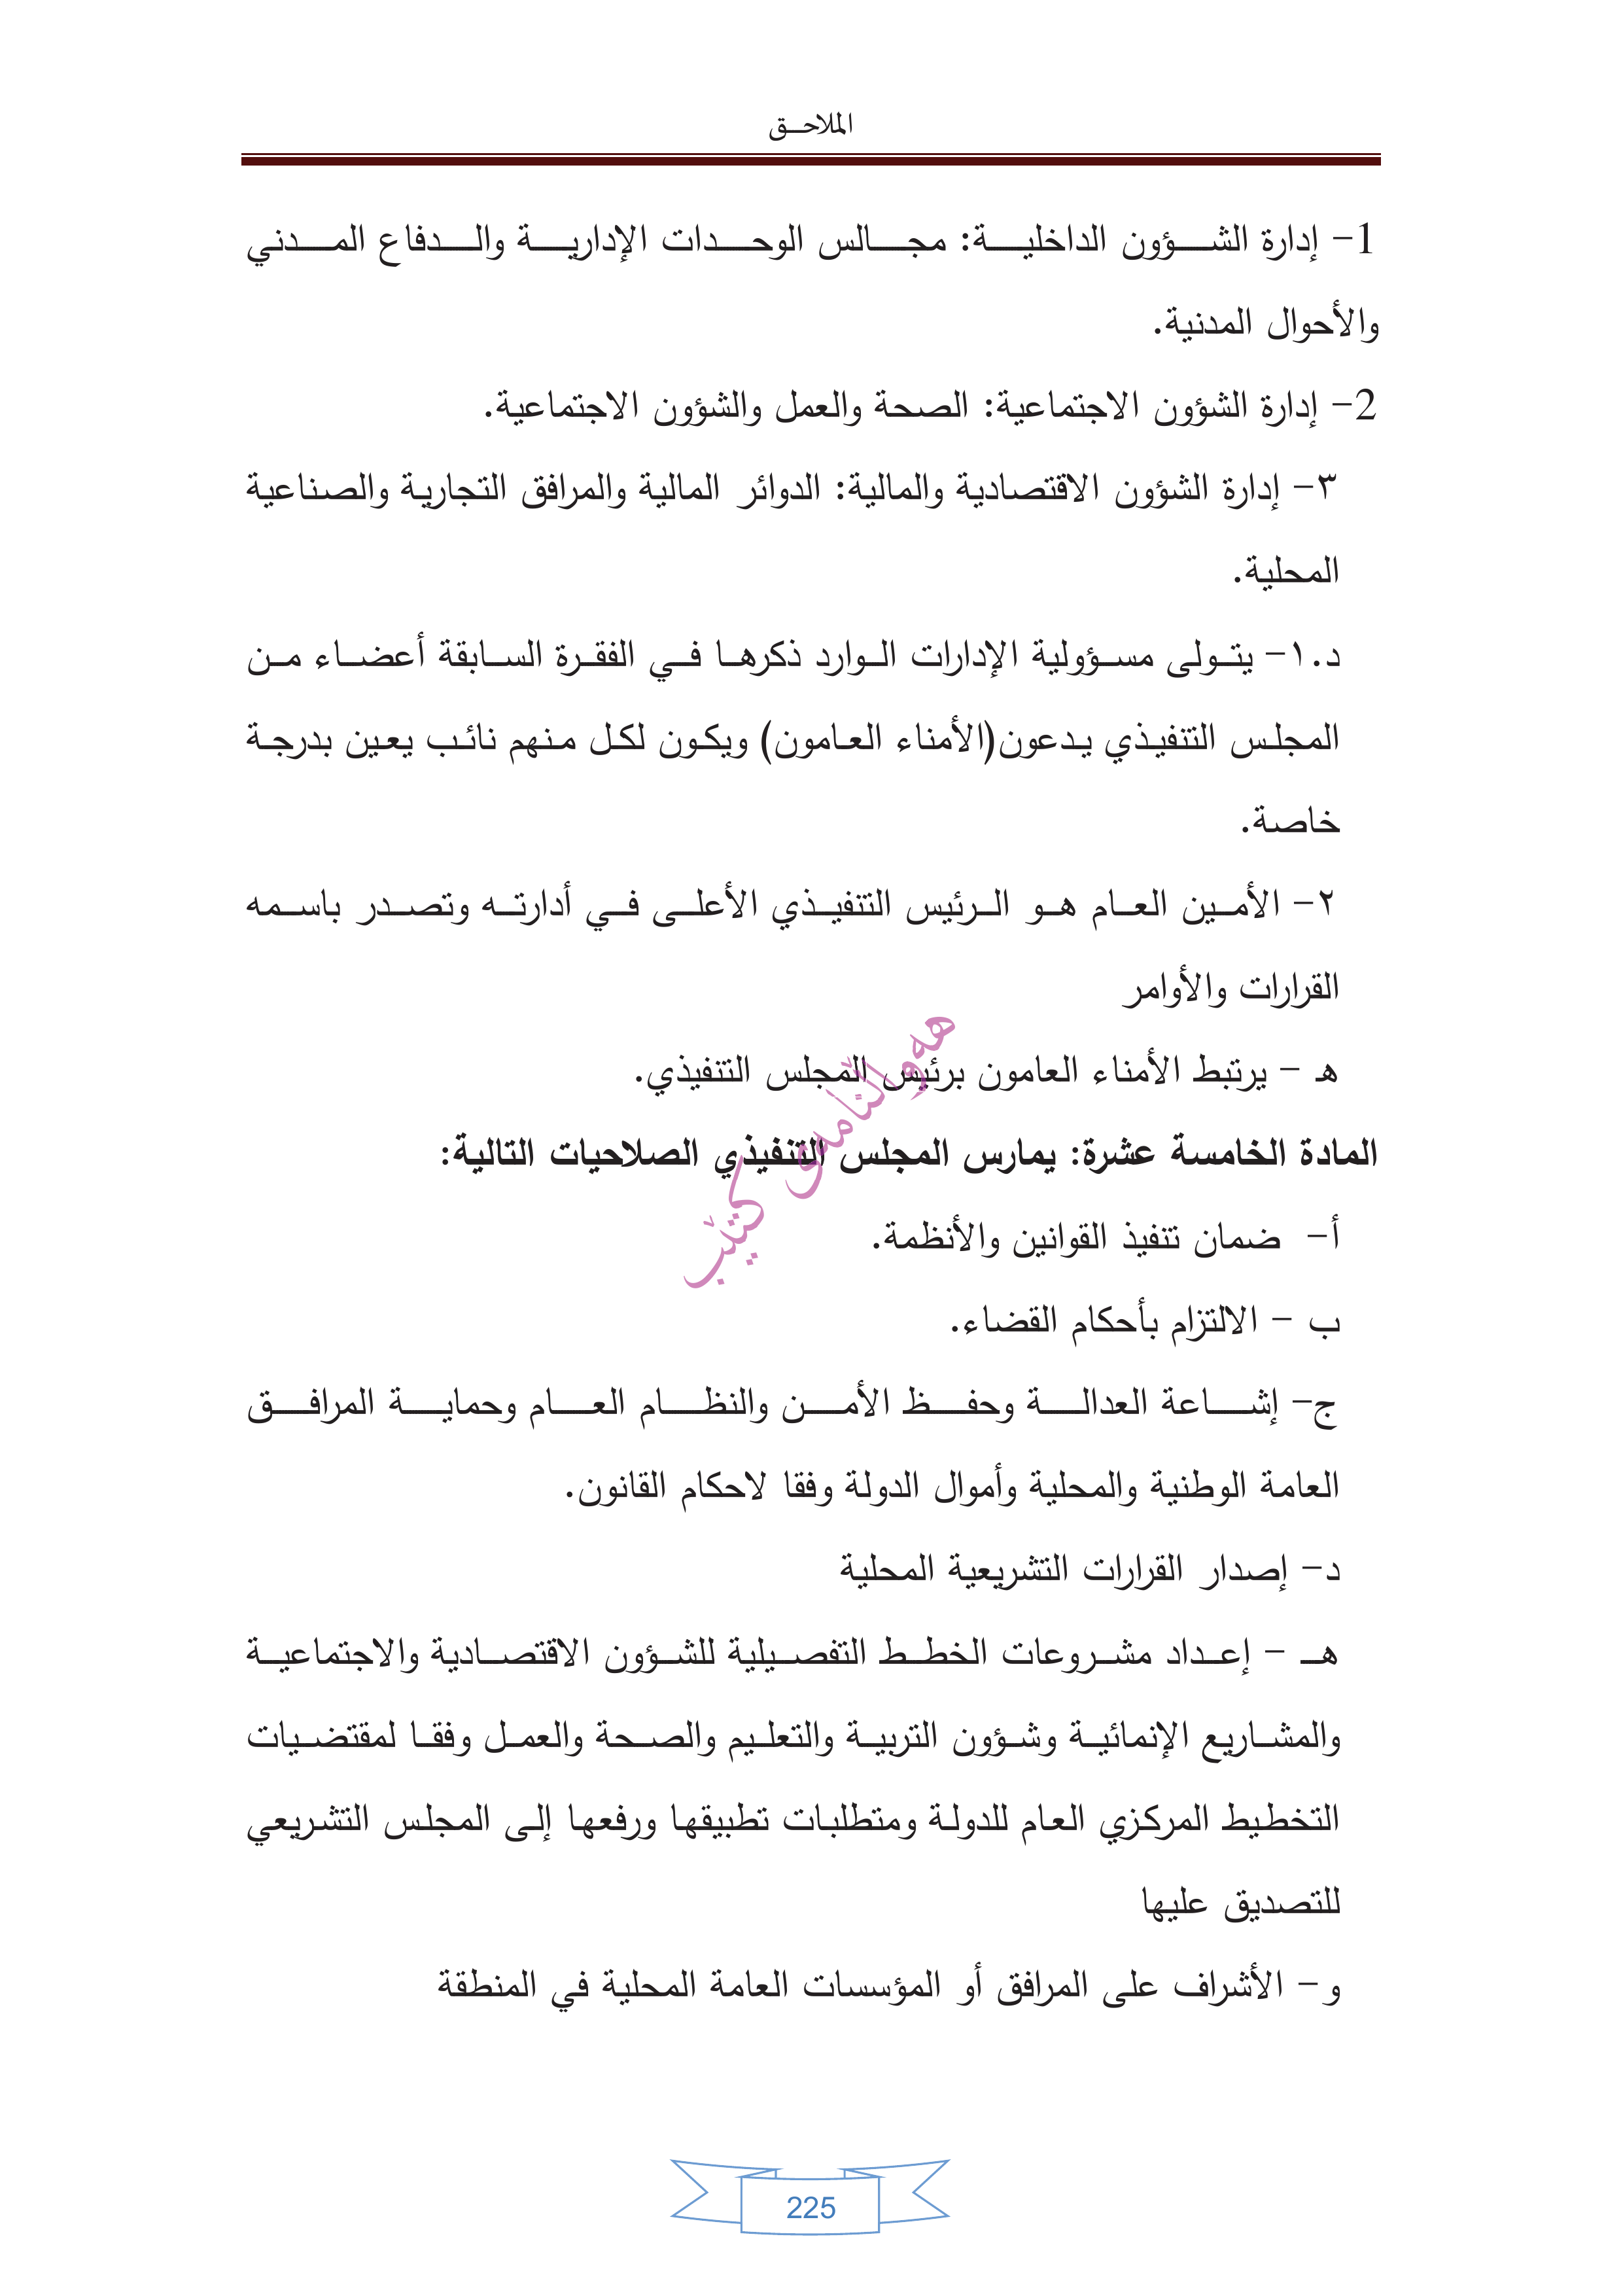 الملاحق
1- إدارة الشؤون الداخلية: مجالس الوحدات الإدارية والدفاع المدني
والأحوال المدنية.
2- إدارة الشؤون الاجتماعية: الصحة والعمل والشؤون الاجتماعية.
٣- إدارة الشؤون الاقتصادية والمالية: الدوائر المالية والمرافق التجارية والصناعية
المحلية.
د.١- يتولى مسؤولية الإدارات الوارد ذكرها في الفقرة السابقة أعضاء من
المجلس التنفيذي يدعون(الأمناء العامون) ويكون لكل منهم نائب يعين بدرجة
خاصة.
٢- الأمين العام هو الرئيس التنفيذي الأعلى في أدارته وتصدر باسمه
القرارات والأوامر
هـ - يرتبط الأمناء العامون برئيس المجلس التنفيذي.
المادة الخامسة عشرة: يمارس المجلس التنفيذي الصلاحيات التالية:
أ- ضمان تنفيذ القوانين والأنظمة.
ب - الالتزام بأحكام القضاء.
ج- إشاعة العدالة وحفظ الأمن والنظام العام وحماية المرافق
العامة الوطنية والمحلية وأموال الدولة وفقا لاحكام القانون.
د- إصدار القرارات التشريعية المحلية
هـ - إعداد مشروعات الخطط التفصيلية للشؤون الاقتصادية والاجتماعية
والمشاريع الإنمائية وشؤون التربية والتعليم والصحة والعمل وفقا لمقتضيات
التخطيط المركزي العام للدولة ومتطلبات تطبيقها ورفعها إلى المجلس التشريعي
للتصديق عليها
و- الأشراف على المرافق أو المؤسسات العامة المحلية في المنطقة
هەواڵنامەی کتێب
225